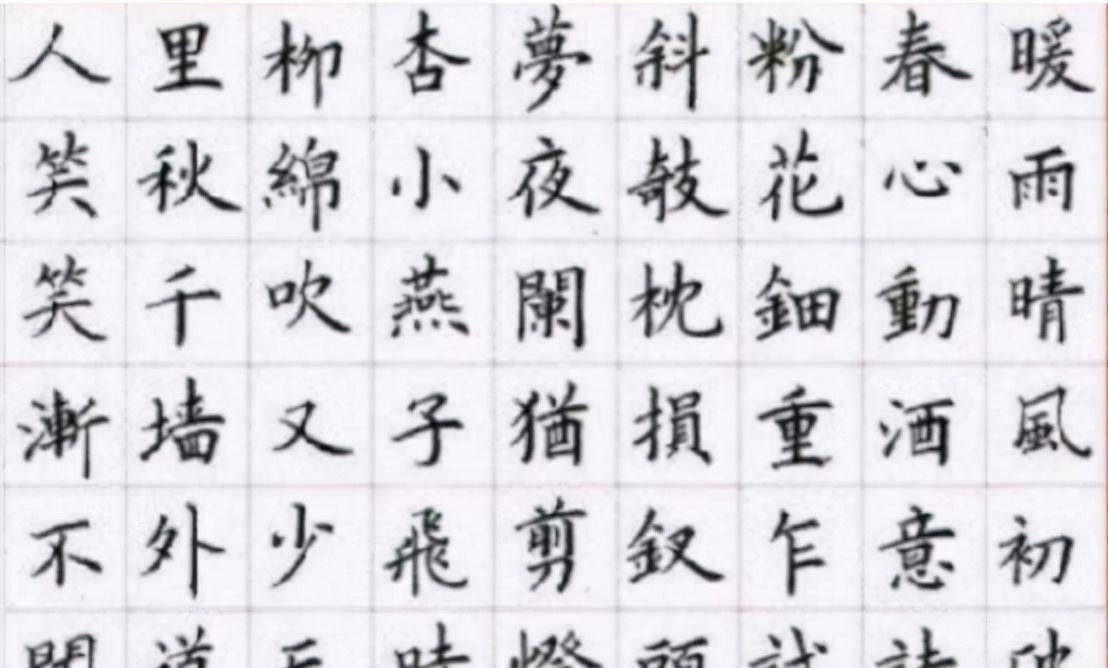 暖雨晴風初
春心動酒意
粉花鈿重乍
斜敧枕損釵
夢夜闌猶剪
杏小燕子飛
柳綿吹又少
里秋千墙外
人笑笑漸不